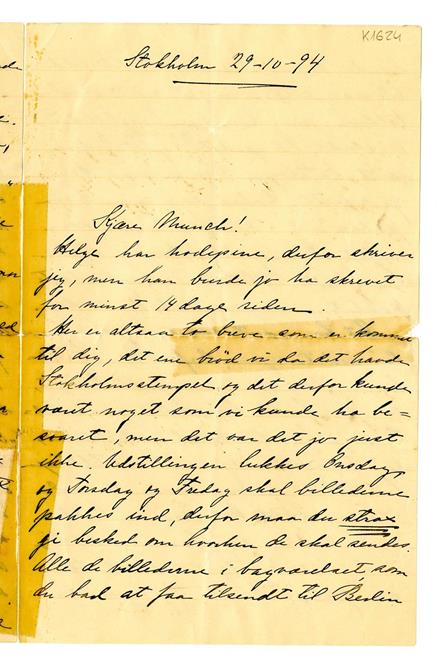 K1624
Stokholm 29-10-94
Kjære Munch!
Helge har hodepine, derfor skriver
jeg, men han burde jo ha skrevet
for minst 14 dage siden.
Her er altsaa to breve som er komne
til dig, det ene brød vi da det havde
Stokholmsstempel og det derfor kunde
været noget som vi kunde ha be=
svaret, men det var det jo just
ikke. Udstillingen lukkes Onsdag,
og Torsdag og Fredag skal billederne
pakkes ind, derfor maa du strax
gi besked om hvorhen de skal sendes.
Alle de billederne i bagværelset, som
du bad at faa tilsendt til Berlin